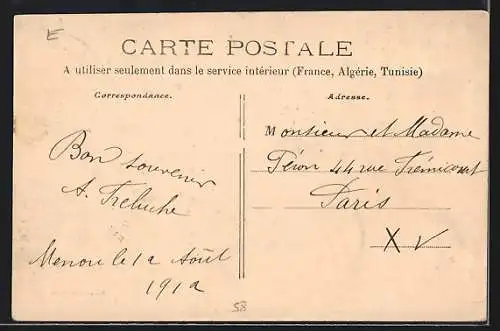 E
CARTE POSTALE
A utiliser seulement dans le service intérieur (France, Algérie, Tunisie)
Correspondance.
Adresse.
Bon souvenir
A. Treluche
Menou le 12 Août
1912
Monsieur et Madame
44 rue
Paris
XV
58